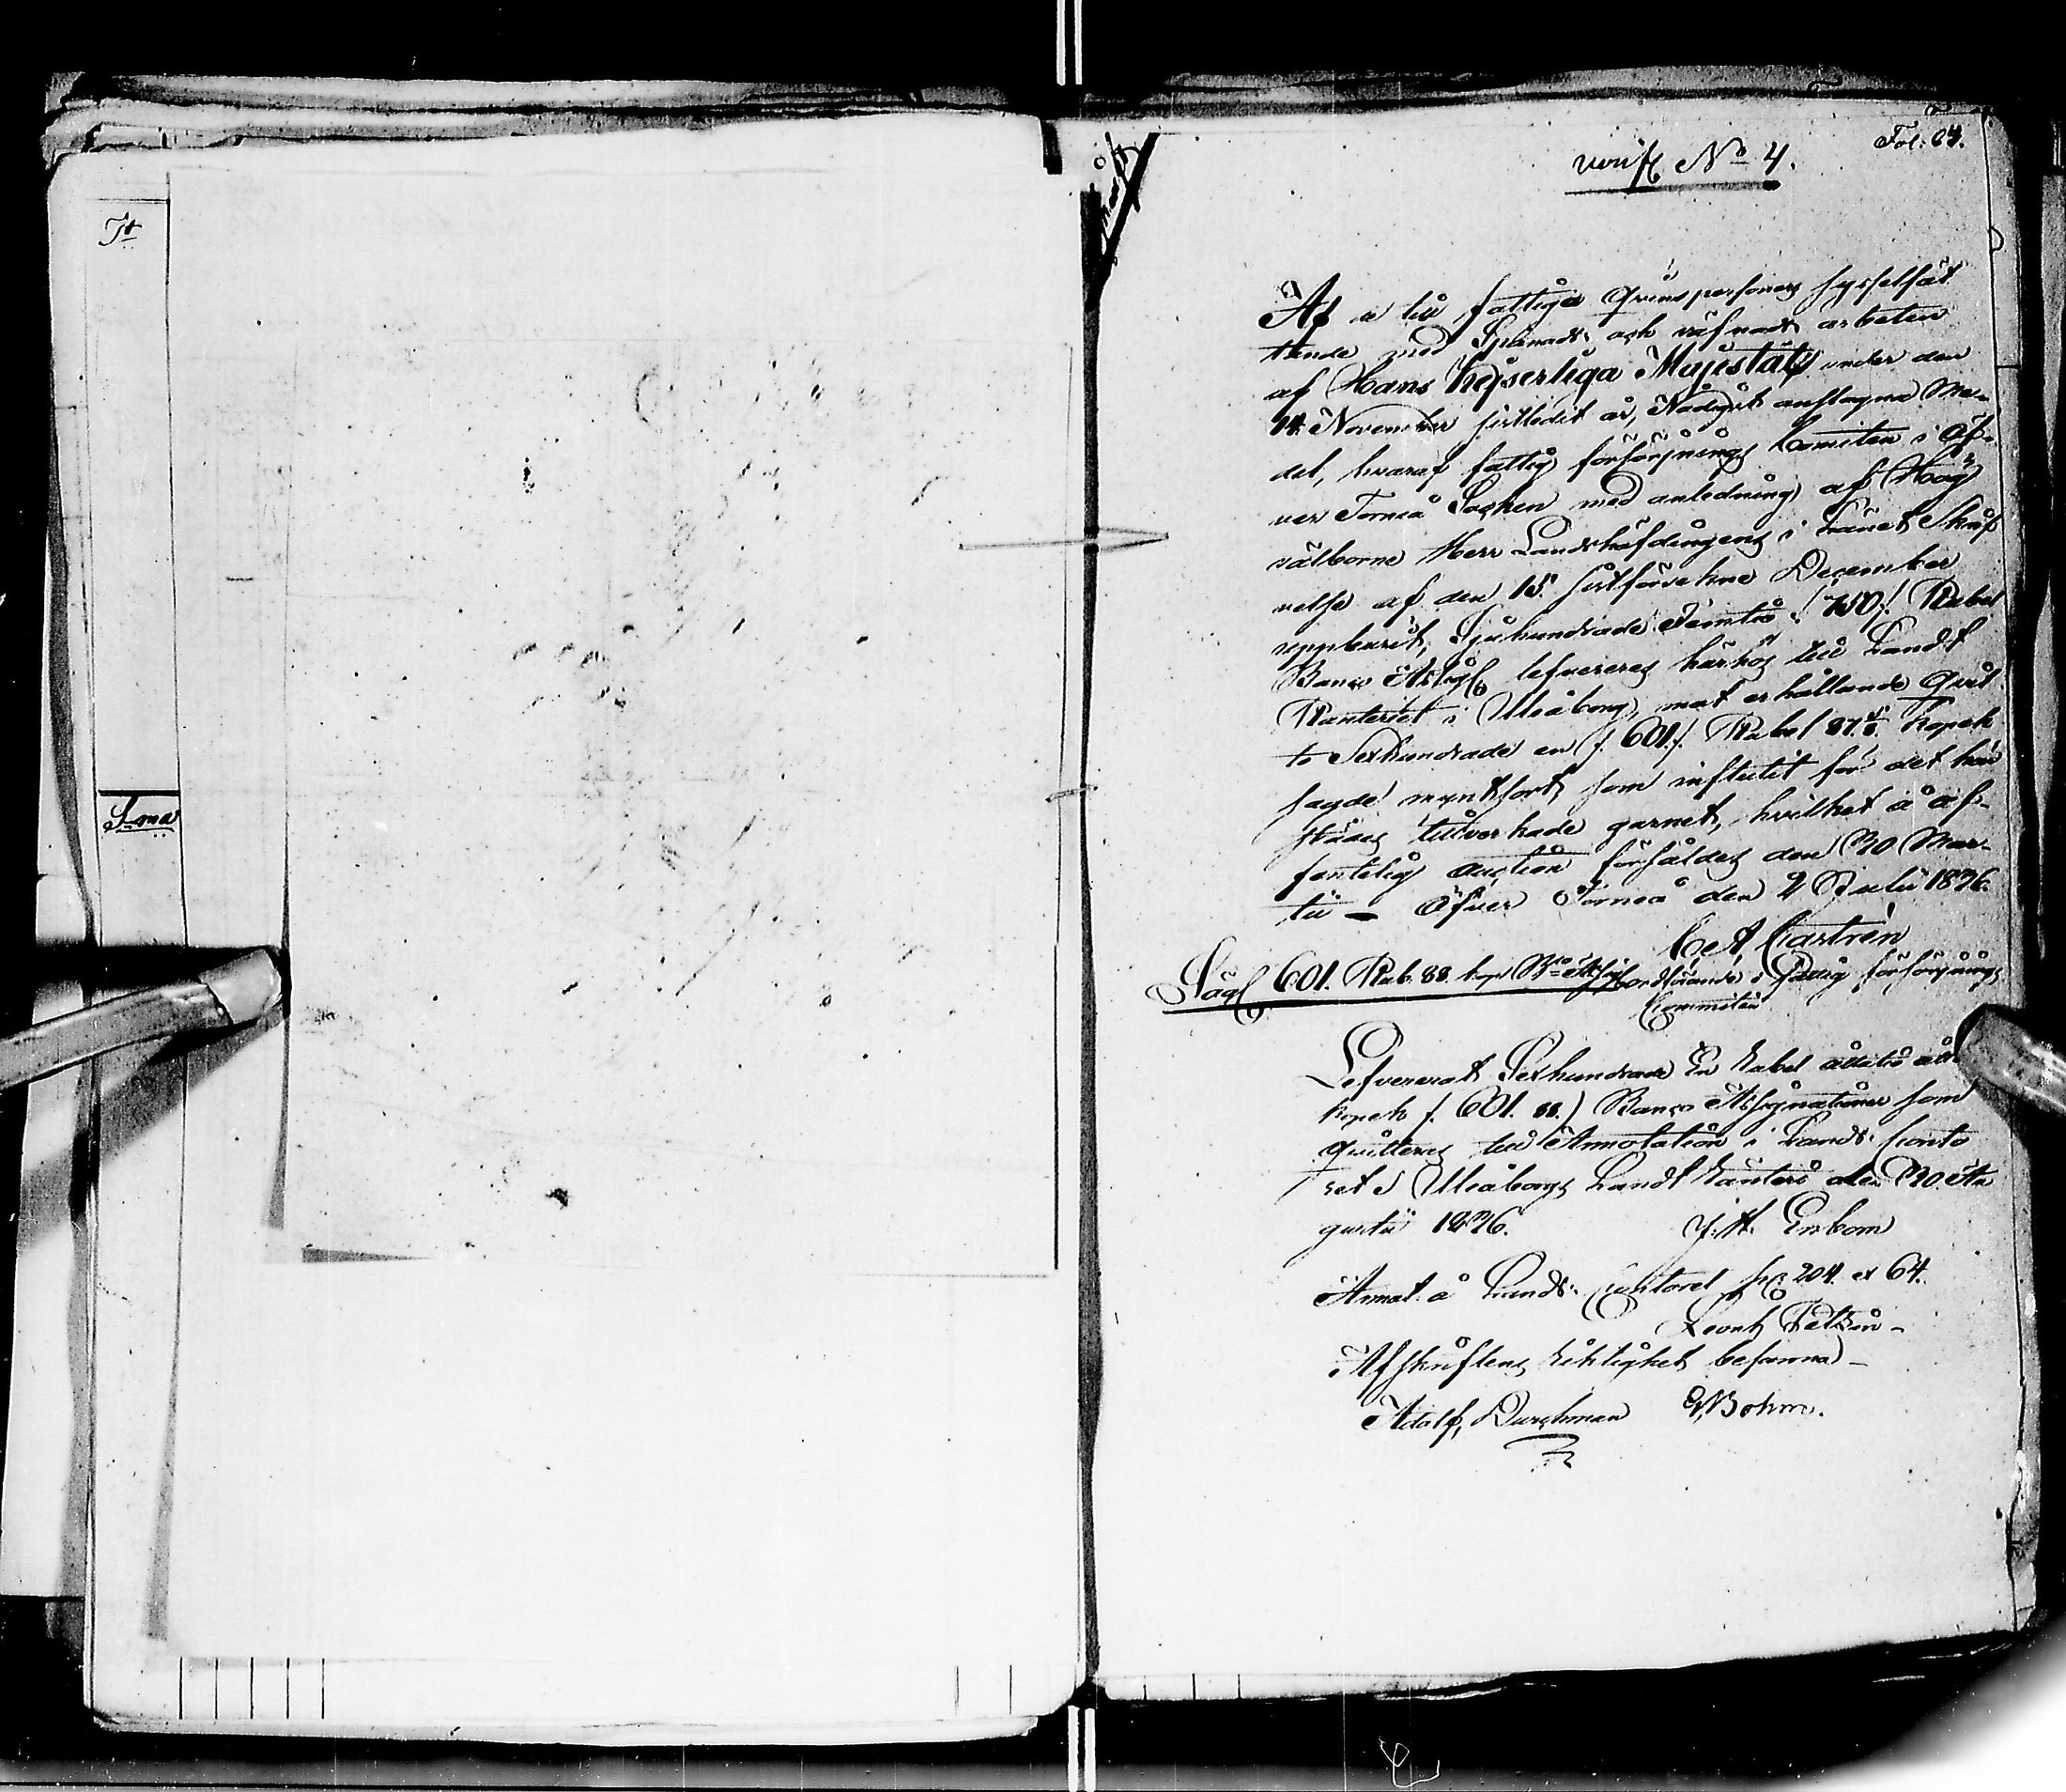 Tt
S-ma
Fol: 64.
verif No 4.
Af de till fattiga Qvinspersoners sysselsät
tande med Spånads och väfnads arbeten
af Hans Kejserliga Majestät under den
14 November sistledit år, Nådigst anslagna Me-
del, hvaraf fattig försörjnings Comiten i Öf-
ver Torneå Sochen med anledning af Hög
välborne Herr Landshöfdingens i Länet Skrif
velse af den 15 sistförvekne December
uppburit, Sjuhundrade Femtio /:750:/ Rubel
Banco Assign levereras härhos till Landt
Ränteriet i Uleåborg, mot erhållande Qvit
to Sexhundrade en /:601:/ Rubel 87 5/8 kopek
sagde myntsort, som influtit för det här
städes tillverkade garnet, hvilket å of-
fentelig auction försåldes den 30 Mar-
tii — Öfver Torneå den 2 Julii 1836.
C et A Castrén
Säg 601. Rub. 88. kop Bco Assig Ordförande i Fattig försörjnings
Committén
Lefvererat Sexhundrade En Rubel åttatio åtta
kopek /: 601. 88.) Banco Assignationer som
qvitteras till Annotation i Lands Conto
ret i Uleåborgs Landt Ränteri den 30 Au
gusti 1836. J. A. Enbom
Annot. å Lands Contoret pag 204. et 64.
Afskriftens riktighet befunna —
Adolf Durchman Bohm.